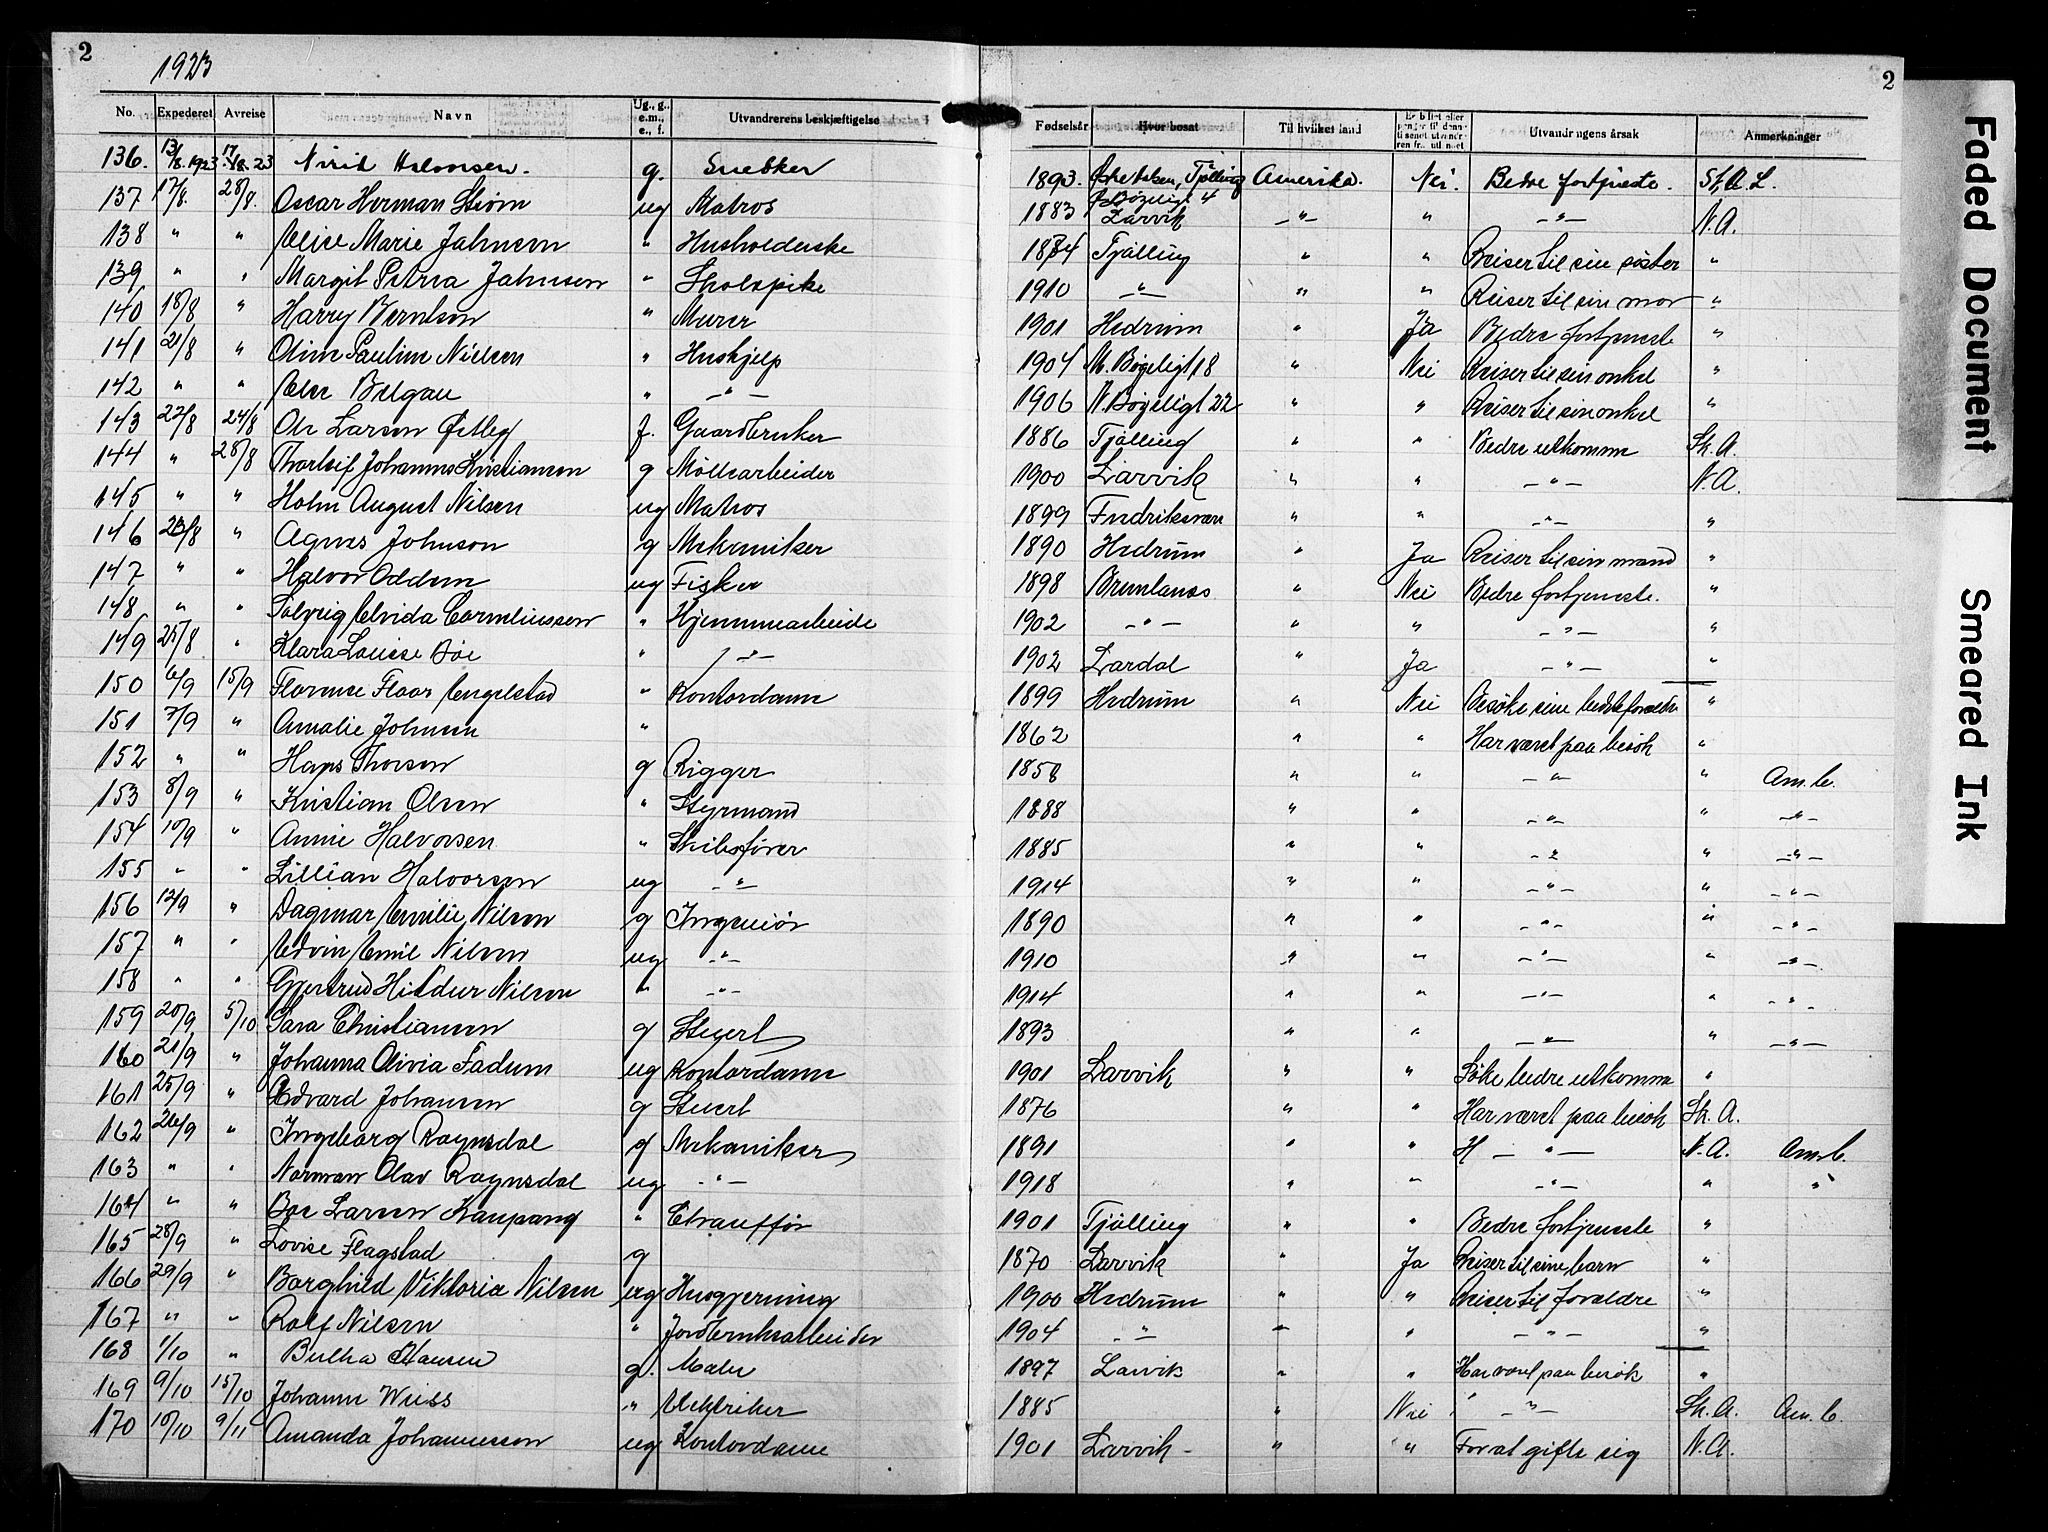 2
1923
No. Expederet Avreise Navn Ug., g., e.m., e., f. Utvandrerens beskjæftigelse Fødselsår Hvor bosat Til hvilket land Utvandringens årsak Anmerkninger
2
136. 13/8.1923 17/8.23 Halvorsen. g. Snekker 1893. Tjølling Amerika. Nei. Bedre fortjeneste. St. A. L.
137 17/8. 28/8. Oscar Herman Strøm ug Matros 1883 Ø. Bøgeligt 4 Larvik —"— " —"— N.A.
138 " " Elise Marie Jahnsen " Husholderske 1874 Tjølling " " Reiser til sin søster "
139 " " Margit Petrea Jahnsen " Skolepike 1910 —"— " " Reiser til sin mor "
140 18/8 " Harry Berntsen " Murer 1901 Hedrum " Ja Bedre fortjeneste "
141 21/8 " Oline Pauline Nielsen " Hushjelp 1904 M. Bøgeligt 18 " Nei Reiser til sin onkel "
142 " " Else Belgau " —"— 1906 N. Bøgeligt 22 " " Reiser til sin onkel "
143 22/8 24/8 Ole Larsen Østby f. Gaardbruker 1886 Tjølling " " Bedre utkomme Sk. A.
144 " 28/8 Thorleif Johannes Kristiansen g Møllearbeider 1900 Larvik " " —"— N.A.
145 " " Holm August Nilsen ug Matros 1899 Fredriksværn " " —"— "
146 23/8 " Agnes Johnson g Mekaniker 1890 Hedrum " Ja Reiser til sin mand "
147 " " Halvor Oddum ug Fisker 1898 Brunlanes " Nei Bedre fortjeneste. "
148 " " Solveig Elvida Corneliussen " Hjemmearbeide 1902 —"— " " —"— "
149 25/8 " Klara Louise Bøe " —"— 1902 Lardal " Ja —"— "
150 6/9 15/9 Florence Floor Engelstad " Kontordame 1899 Hedrum " Nei Besøke sine bedsteforældre "
151 7/9 " Amalie Johnsen " 1862 " " Har været paa besøk "
152 " " Hans Thorsen g Rigger 1858 " " —"— " Am. b.
153 8/9 " Kristian Olsen " Styrmand 1888 " " —"— " —"—
154 10/9 " Annie Halvorsen " Skibsfører 1885 " " —"— " —"—
155 " " Lillian Halvorsen ug —"— 1914 " " —"— " —"—
156 12/9 " Dagmar Emilie Nilsen g Ingeniør 1890 " " —"— " —"—
157 " " Edvin Emil Nilsen ug —"— 1910 " " —"— " —"—
158 " " Gjertrud Hildur Nilsen " —"— 1914 " " —"— " —"—
159 20/9 5/10 Sara Christiansen g Stuert 1893 " " —"— " —"—
160 21/9 " Johanna Olivia Fadum ug Kontordame 1901 Larvik " " Søke bedre utkomme "
161 25/9 " Edvard Johansen g Stuert 1876 " " Har været paa besøk Sk. A.
162 26/9 " Ingeborg Ragnsdal g Mekaniker 1891 " " H —"— N.A. Am. b.
163 " " Norman Olav Ragnsdal ug —"— 1918 " " —"— " "
164 " " Larsen Kaupang " Chauffør 1901 Tjølling " " Bedre fortjeneste "
165 28/9 " Lovise Flagstad g 1870 Larvik " Ja Reiser til sine barn "
166 29/9 " Borghild Viktoria Nilsen ug Husgjerning 1900 Hedrum " " Reiser til forældre "
167 " " Rolf Nilsen " Jordbruksarbeider 1904 —"— " " —"— "
168 1/10 " Hansen g. Maler 1897 Larvik " " Har været paa besøk "
169 9/10 15/10 Johanne Weiss " Elektriker 1885 " Nei " —"— Sk. A. Am. b.
170 10/10 9/11 Amanda Johannessen ug Kontordame 1901 Larvik " " For at gifte sig N.A.
Faded Document
Smeared Ink